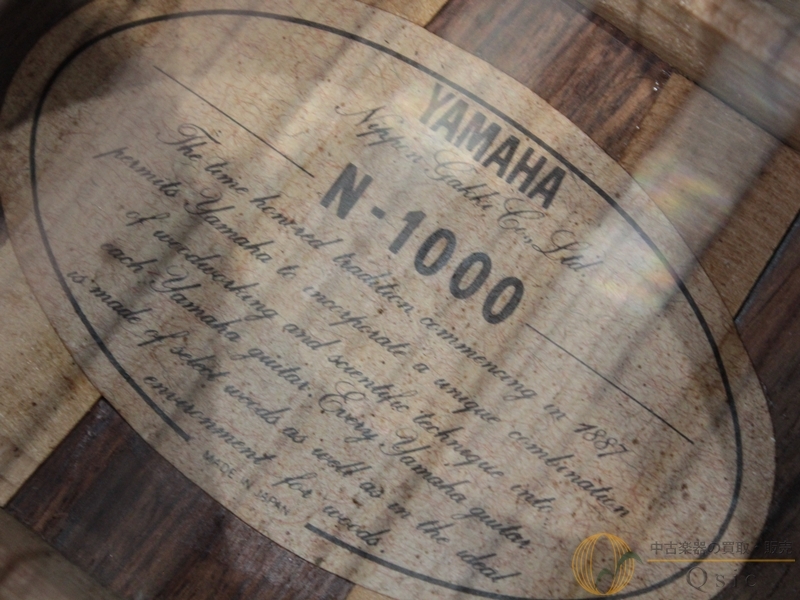 YAMAHA
Nippon Gakki Co., Ltd.
N-1000
The time honored tradition commencing in 1887
permits Yamaha to incorporate a unique combination
of woodworking and scientific technique into
each Yamaha guitar. Every Yamaha guitar
is made of select woods as well as in the ideal
environment for woods.
MADE IN JAPAN
中古楽器の買取・販売
Qsic